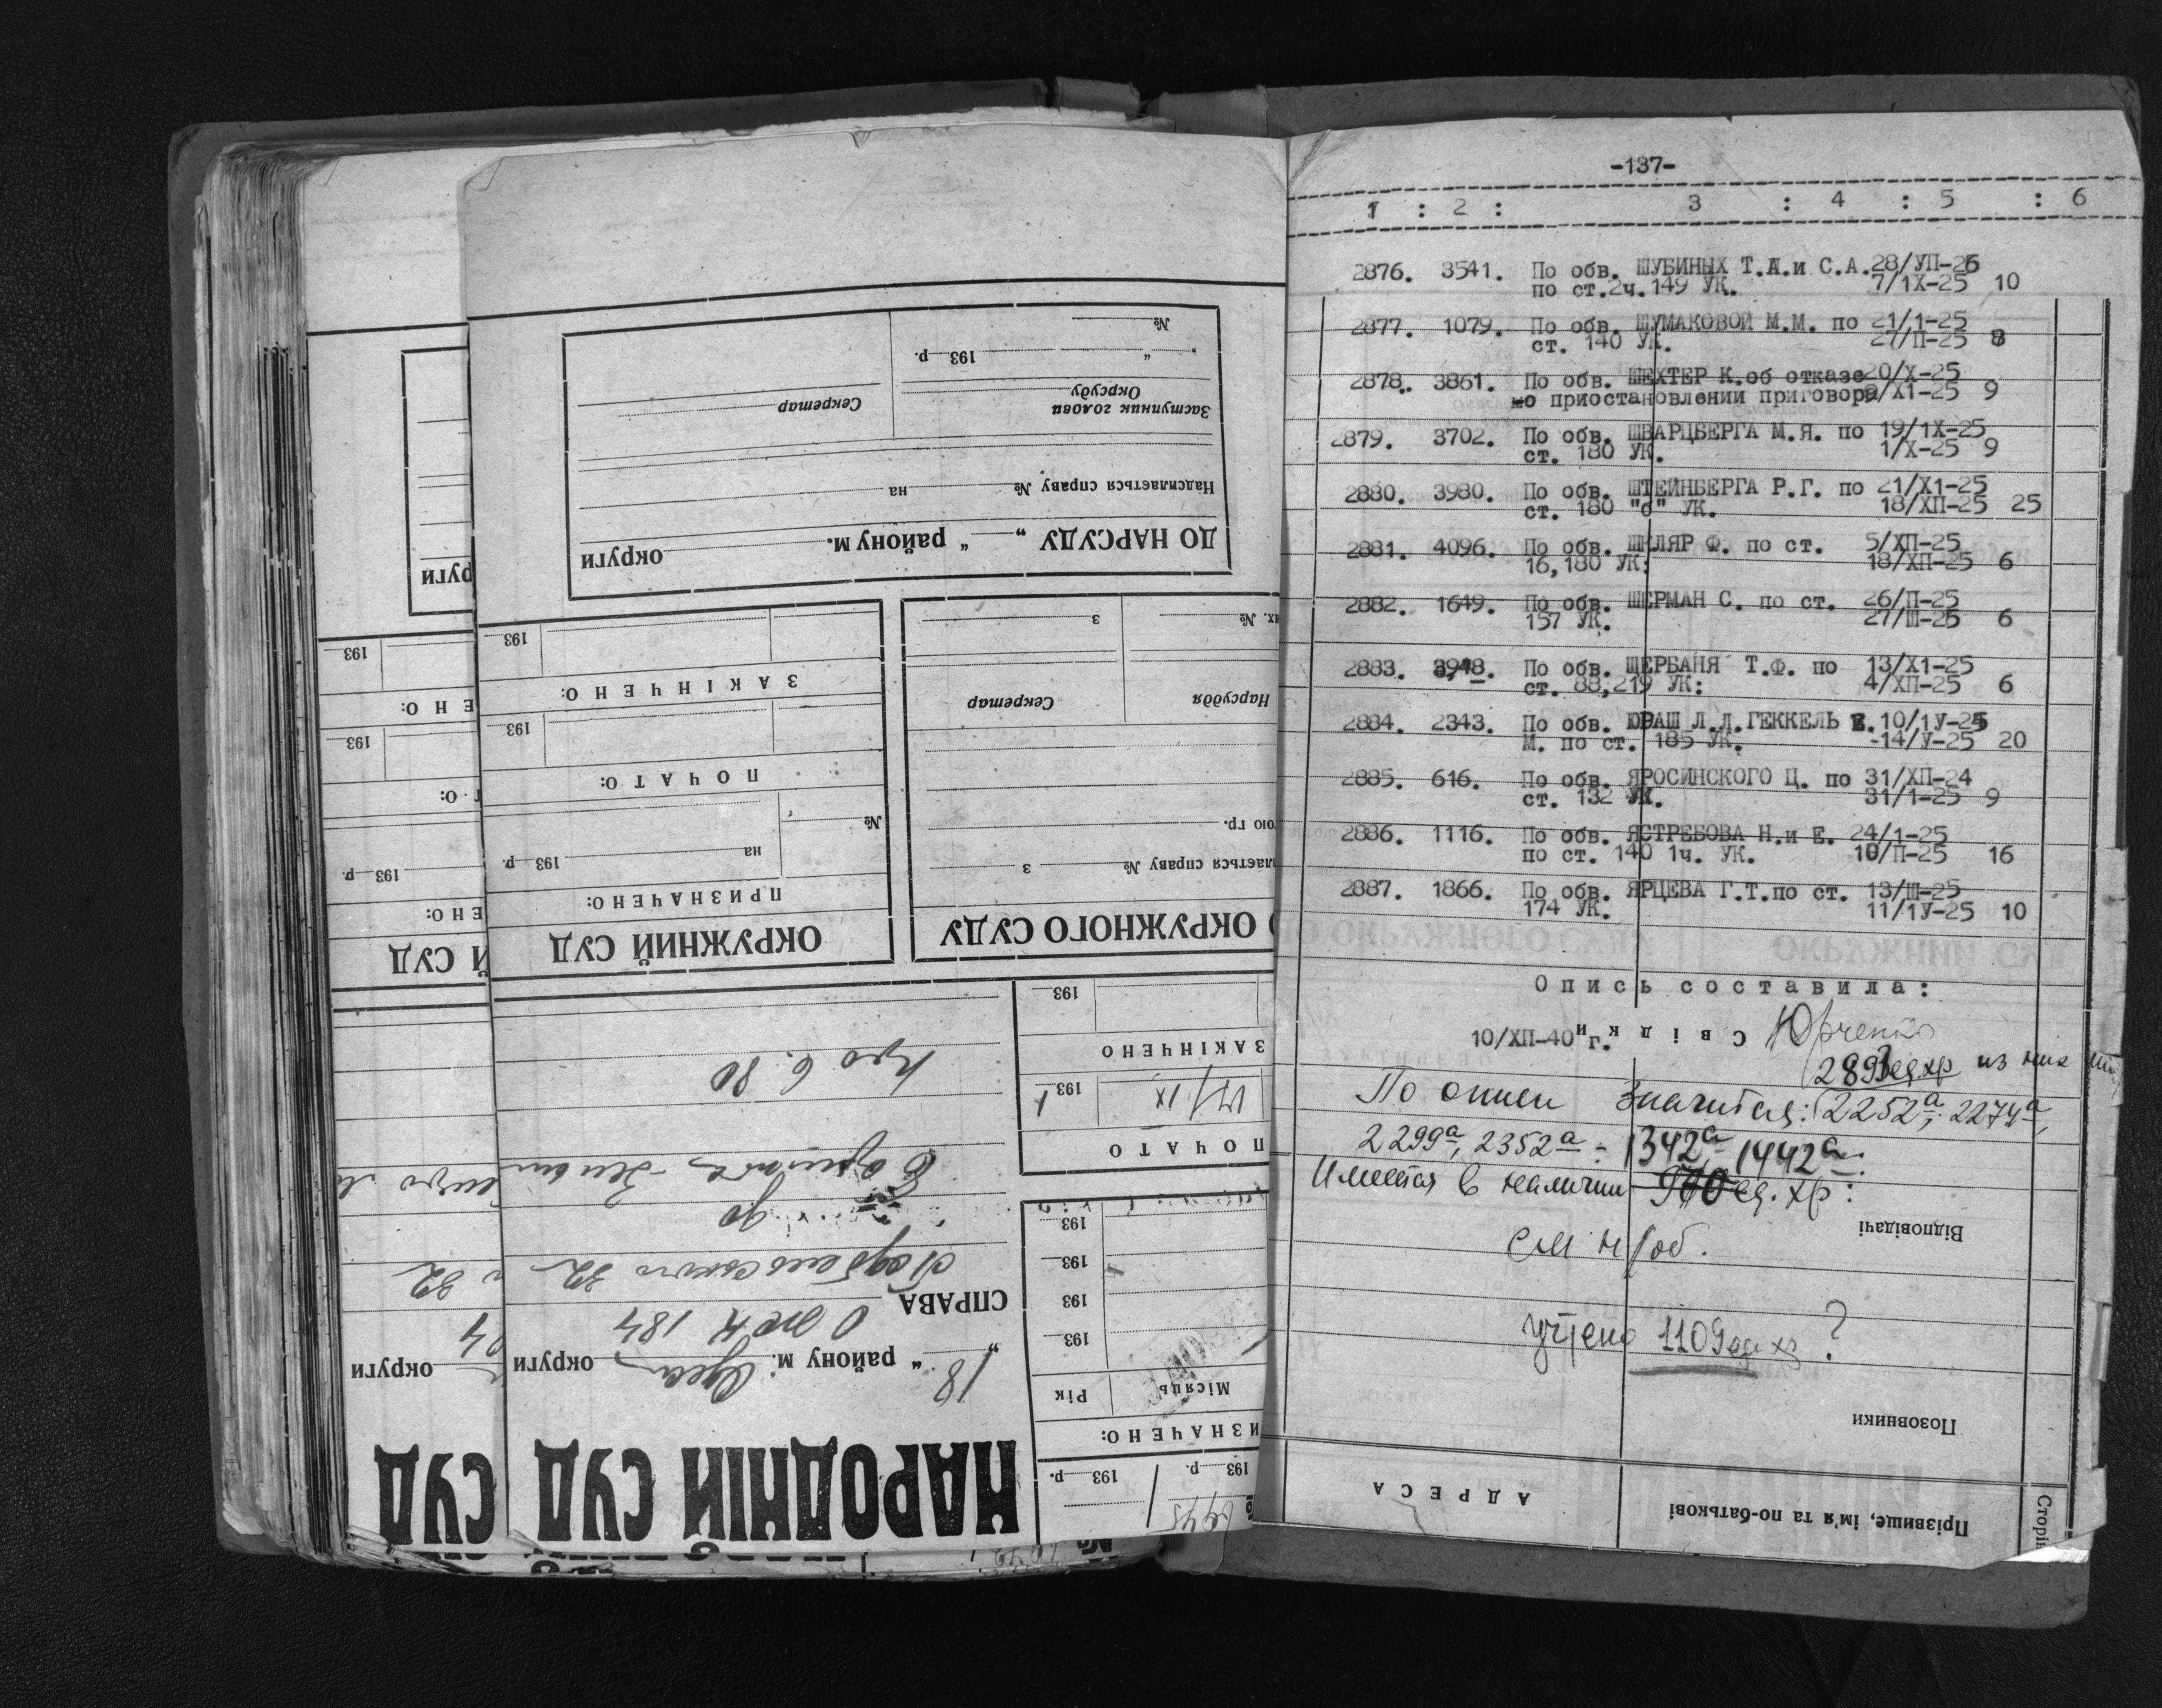 -137-
1 : 2 : 3 : 4 : 5 : 6
2876. 3541. По обв. ШУБИНЫХ Т.А.и С.А.28/УП-25
по ст.2ч.149 УК. 7/1Х-25 10
2877. 1079. По обв. ШУМАКОВОЙ М.М. по 21/1-25
ст. 140 УК. 27/П-25 8
2878. 3861. По обв. ШЕХТЕР К.об отказе 20/Х-25
о приостановлении приговора 9/Х1-25 9
2879. 3702. По обв. ШВАРЦБЕРГА М.Я. по 19/1Х-25
ст. 180 УК. 1/Х-25 9
2880. 3980. По обв. ШТЕЙНБЕРГА Р.Г. по 21/Х1-25
ст. 180 "б" УК. 18/ХП-25 25
2881. 4096. По обв. ШКЛЯР Ф. по ст. 5/ХП-25
16,180 УК: 18/ХП-25 6
2882. 1649. По обв. ШЕРМАН С. по ст. 26/П-25
157 УК. 27/Ш-25 6
2883. 3948. По обв. ЩЕРБАНЯ Т.Ф. по 13/Х1-25
ст. 88,219 УК: 4/ХП-25 6
2884. 2343. По обв. ЮРАШ Л.Л.ГЕККЕЛЬ Е. 10/1У-25
М. по ст. 185 УК. -14/У-25 20
2885. 616. По обв. ЯРОСИНСКОГО Ц. по 31/ХП-24
ст. 132 УК. 31/1-25 9
2886. 1116. По обв. ЯСТРЕБОВА Н.и Е. 24/1-25
по ст. 140 1ч. УК. 10/П-25 16
2887. 1866. По обв. ЯРЦЕВА Г.Т.по ст. 13/Ш-25
174 УК. 11/1У-25 10
Опись составила:
10/ХП-40 г. Свідки Юрченко
2893 ед.хр из них лит
По описи значится: (2252а; 2274а,
2299а, 2352а - 1342а, 1442а:
Имеется в наличии ед. хр:
Відповідачі
см н/об.
учтено 1109 ед хр ?
Позовники
АДРЕСА
Прізвище, ім'я та по-батькові
Сторін
НАРОДНІЙ СУД
18 " району м. Одеса округи
СПРАВА
О ЖКТ 184
до
Про 6. 80
ОКРУЖНИЙ СУД
ПРИЗНАЧЕНО:
на 193 р.
№
ПОЧАТО:
193
ЗАКІНЧЕНО:
193
ДО НАРСУДУ „ " району м. округи
Надсилається справу № на
Заступник голови
Окрсуду
Секретар
" " 193 р.
№
ОКРУЖНОГО СУДУ
лається справу № з
ою гр.
Нарсуддя
Секретар
их. № з
193 р. 193 р.
ИЗНАЧЕНО:
Місяць Рік
193
193
193
193
ПОЧАТО
193
ЗАКІНЧЕНО
193
СУД
округи
Й СУД
ЕНО:
193 р.
ТО:
193
ЕНО:
193
руги